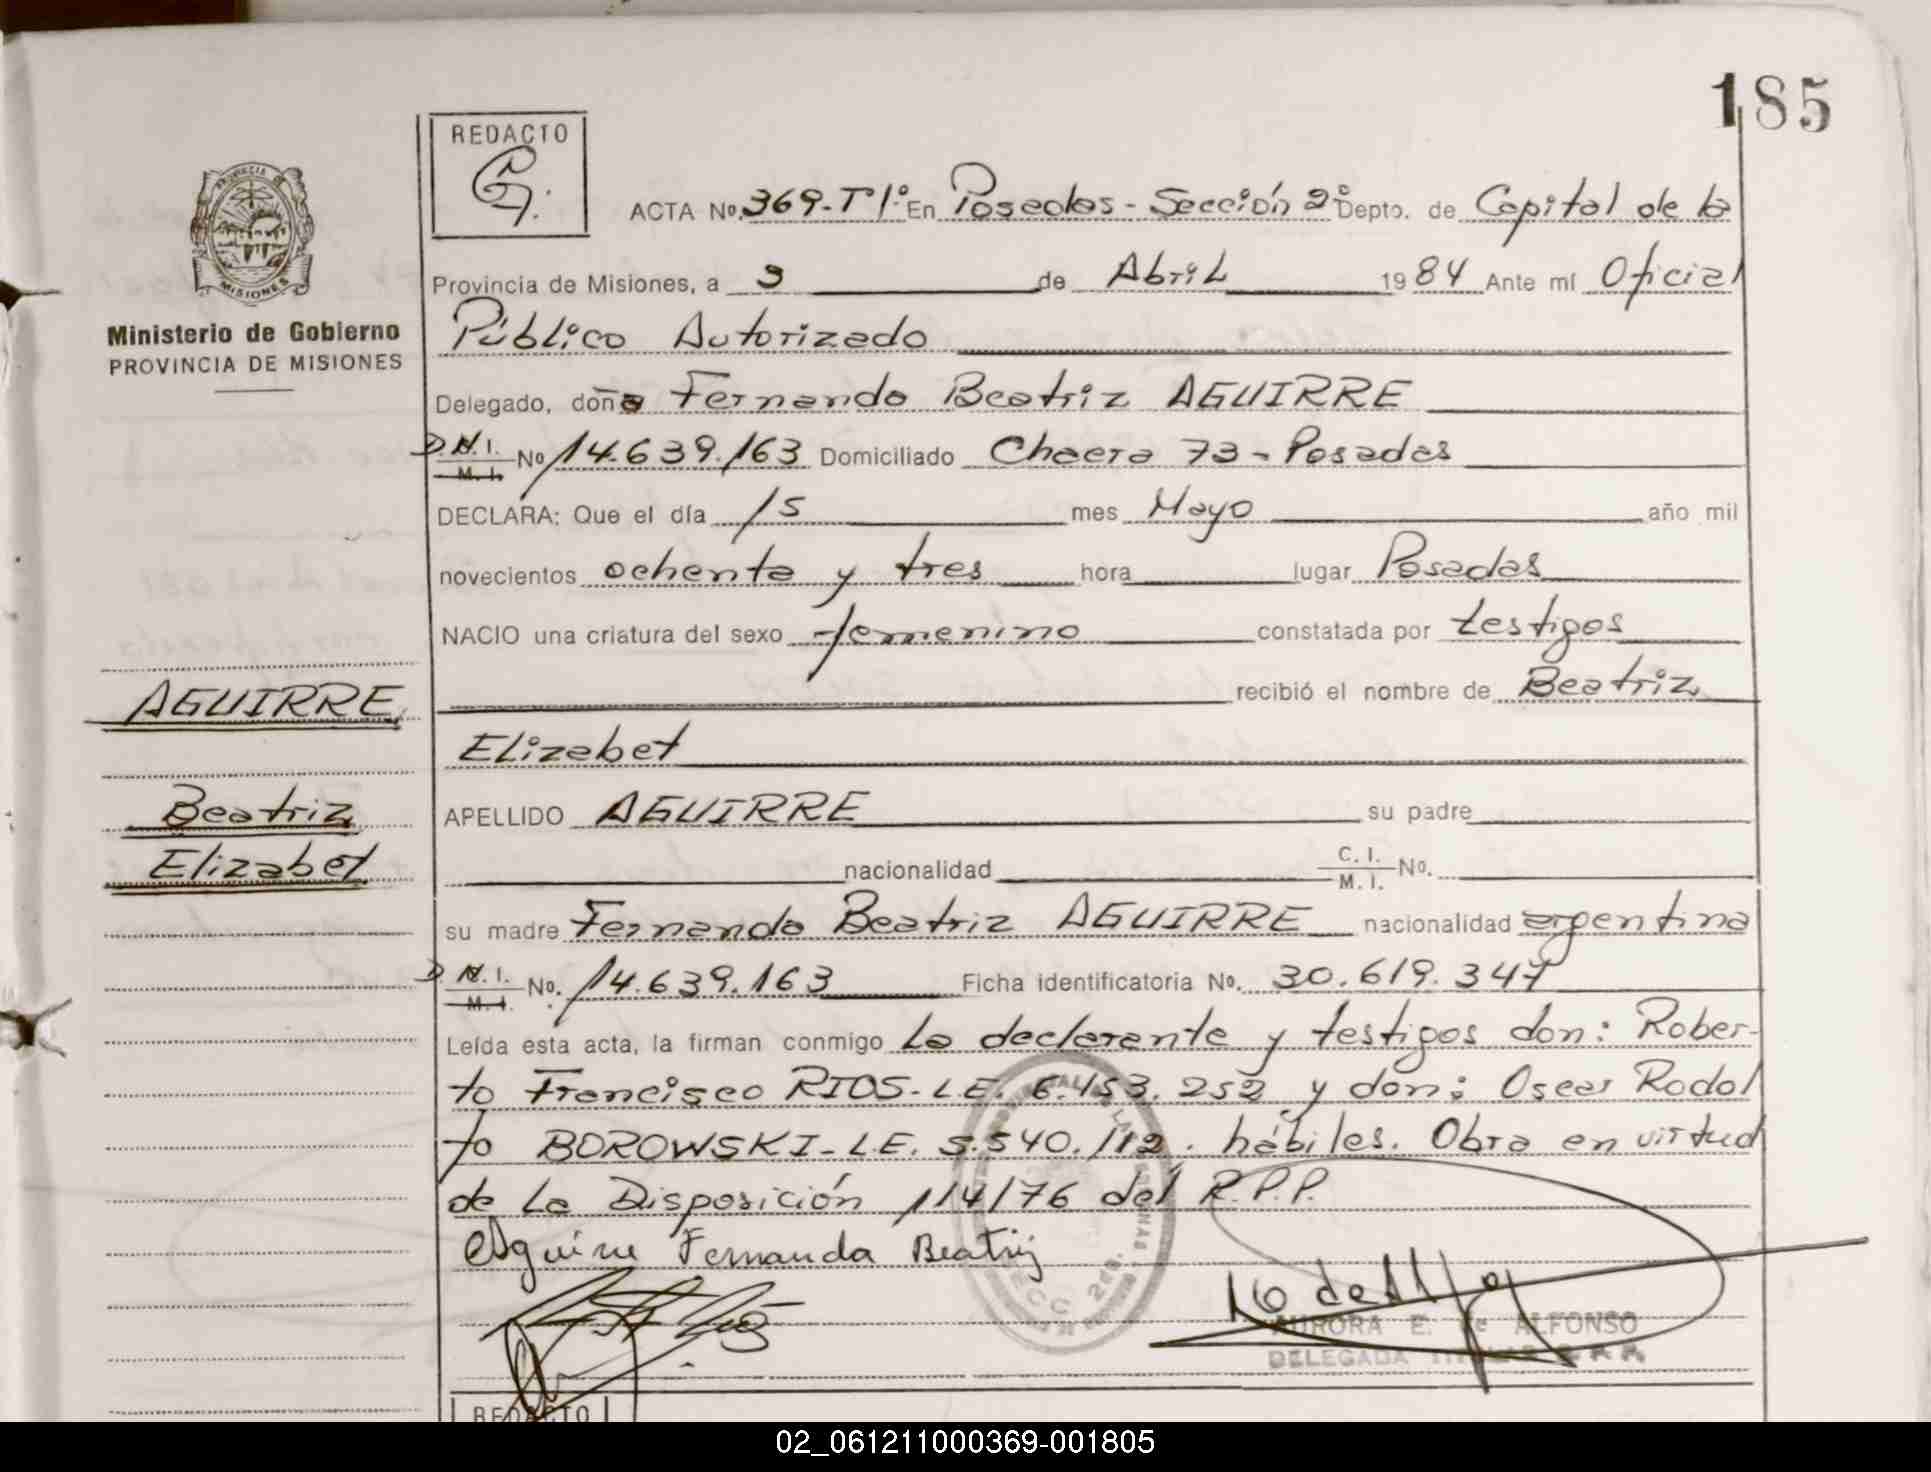 185
REDACTO
ACTA No. 369-Tº1º En Posadas - Sección 2º Depto. de Capital de la
Provincia de Misiones, a 3 de Abril 1984 Ante mí Oficial
MISIONES
Ministerio de Gobierno
PROVINCIA DE MISIONES
Público Autorizado
Delegado, doña Fernanda Beatriz AGUIRRE
D.N.I. M.I. No 14.639.163 Domiciliado Chacra 73 - Posadas
DECLARA: Que el día 15 mes Mayo año mil
novecientos ochenta y tres hora lugar Posadas
NACIO una criatura del sexo femenino constatada por testigos
AGUIRRE
recibió el nombre de Beatriz
Elizabet
Beatriz
Elizabet
APELLIDO AGUIRRE su padre
nacionalidad C.I. M.I. No.
su madre Fernanda Beatriz AGUIRRE nacionalidad argentina
D.N.I. M.I. No. 14.639.163 Ficha identificatoria No. 30.619.347
Leída esta acta, la firman conmigo la declarante y testigos don: Rober-
to Francisco RIOS-L.E. 6.153.252 y don: Oscar Rodol
fo BOROWSKI-L.E. 5.540.112. hábiles. Obra en virtud
de la Disposición 114/76 del R.P.P.
Aguirre Fernanda Beatriz
SECC. 2da.
AURORA E. de ALFONSO
DELEGADA TITULAR R.P.P.
REDACTO
02_061211000369-001805